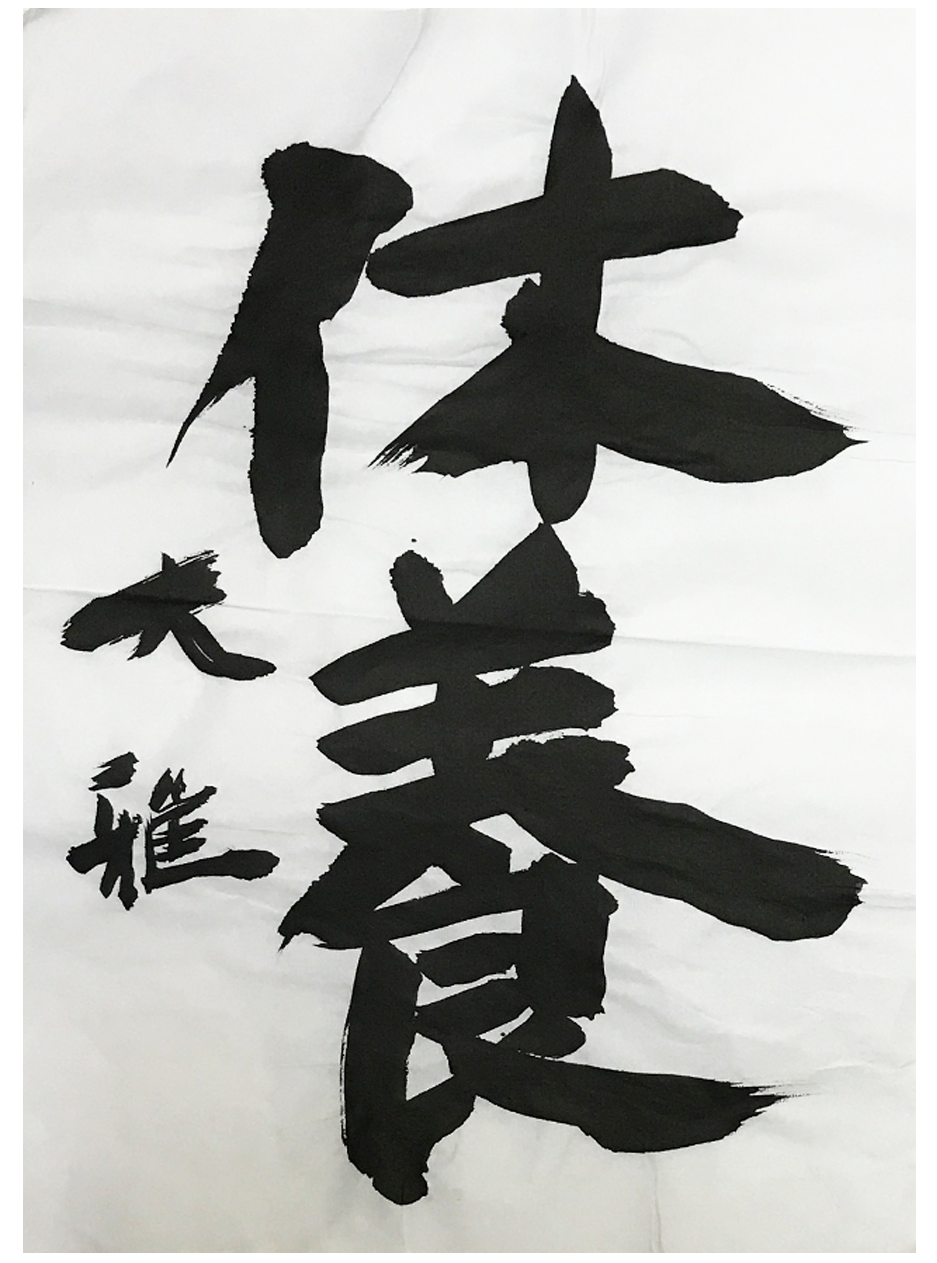 休養
大雅